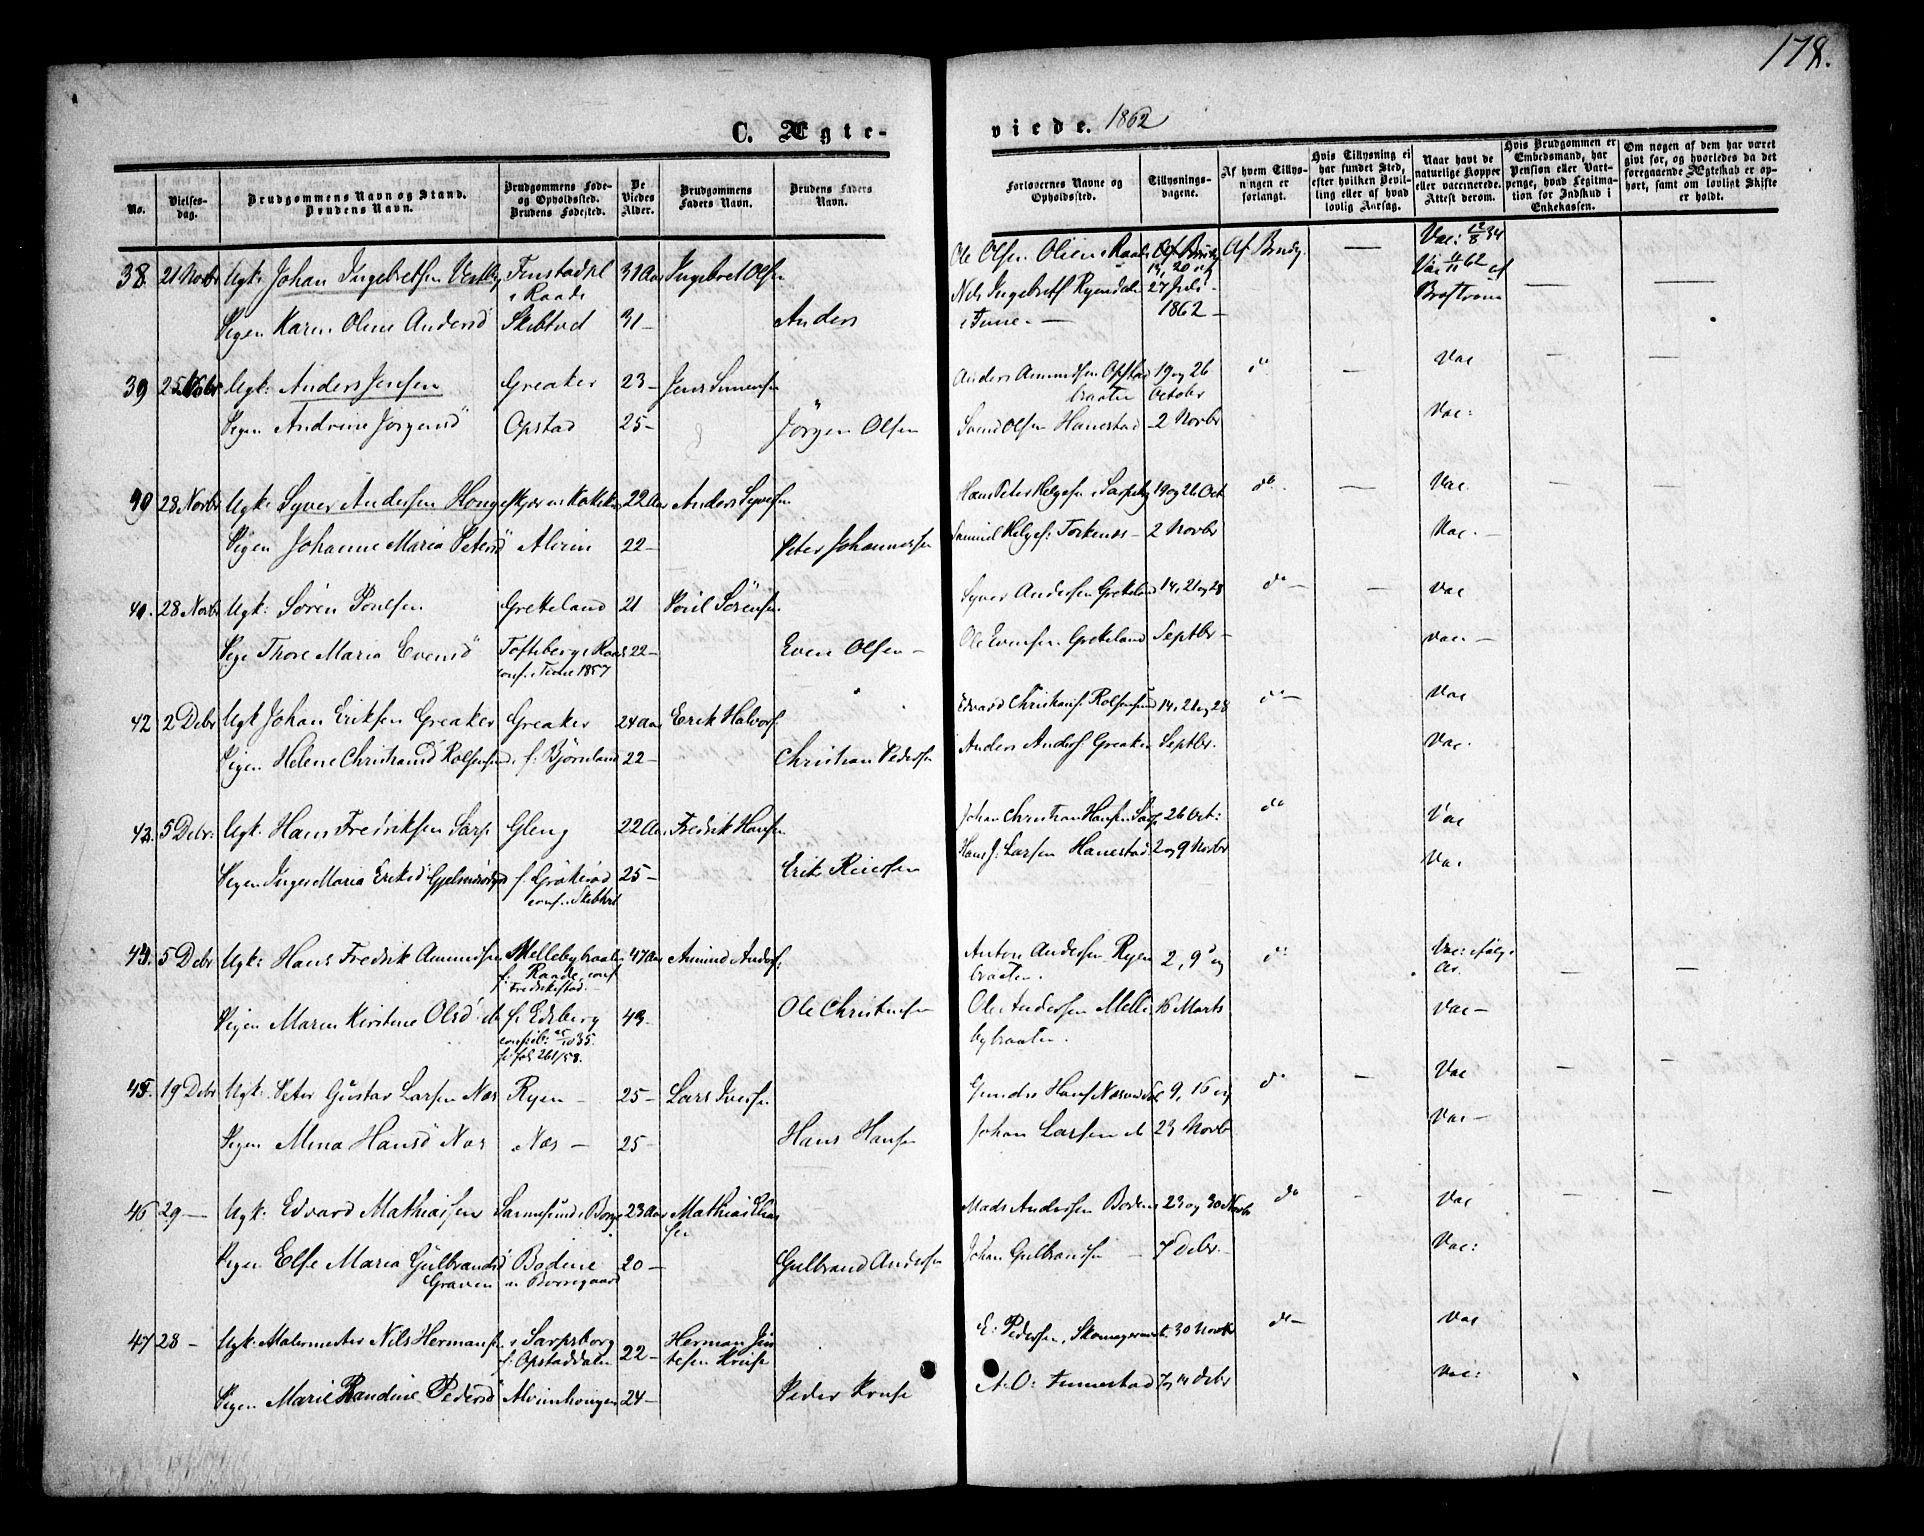 178.
C. Ægte-
viede. 1862
No.
Vielses-
dag.
Brudgommens Navn og Stand.
Brudens Navn.
Brudgommens Føde-
og Opholdssted.
Brudens Fødested.
De
Viedes
Alder.
Brudgommens
Faders Navn.
Brudens Faders
Navn.
Forlovernes Navne og
Opholdssted.
Tillysnings-
dagene.
Af hvem Tillys-
ningen er
forlangt.
Hvis Tillysning ei
har fundet Sted,
efter hvilken Bevil-
ling eller af hvad
lovlig Aarsag.
Naar havt de
naturlige Kopper
eller vaccinerede.
Attest derom.
Hvis Brudgommen er
Embedsmand, har
Pension eller Vart-
penge, hvad Legitima-
tion for Indskud i
Enkekassen.
Om nogen af dem har været
gift før, og hvorledes da det
foregaaende Ægteskab er op-
hørt, samt om lovligt Skifte
er holdt.
38. 21 Novbr Ugk: Johan Ingebretsen Tenstadpl 31 Aar Ingebret Olsen Ole Olsen Olien i Raade Af Brudg. — Vac: 12/8 34
i Raade Nils Ingebretf 27 Juli Vac 62
Pigen Karen Oline Andersd Skibtvet 31 — Anders i Tune — 1862 —
39 25 Novbr Ugk: Anders Jensen Greaker 23 — Jens Simensen Anders Amundsen Opstad 19 og 26 do — Vac — —
braaten October
Pigen Andrine Jørgensd Opstad 25 — Jörgen Olsen Svend Olsen Hanestad 2 Novbr Vac:
40 28 Novbr Ugk: Syver Andersen Hong 22 Aar Anders Syversen Hans Peter Helgesen Sarpsbg 19 og 26 Oct do — Vac
Pigen Johanne Maria Petersd Alvim 22 — Peter Johannessen Samuel Helges: Torkenæs — 2 Novbr Vac. —
41. 28 Novbr Ugk: Sören Poulsen Grekeland 21 Poul Sörensen Syver Andersen Grekeland 14, 21 og 28 do — — Vac
Pige Thore Maria Evensd Toftsberg i Raade 22 — Even Olsen — Ole Evensen Grekeland Septbr — Vac —
conf. i Tune 1857
42 2 Debr Ugk Johan Eriksen Greaker Greaker 24 Aar Erik Halvors: Edvard Christians: Rolfsösund 14, 21 og 28 do — Vac
Pigen Helene Christiansd Rolfsösund f: Björnland 22 — Christian Pedersen Anders Andersf Greaker Septbr. Vac.
43. 5 Debr: Ugk. Hans Fredriksen Sarp: Gleng 22 Aar Fredrik Hansen Johan Christian Hansen Sarp: 26 Oct: do Vac
Pigen Inger Maria Eriksd f. Grökeröd 25 — Erik Hans J: Larsen Hanestad 2 og 9 Novbr Vac
conf. i Skibtvet
44. 5 Debr Ugk: Hans Fredrik Amundsen Mellebybraaten 47 Aar Amund Andersf: Anton Andersen Ryen 2, 9 og do Vac:
f: Raade, conf braaten. — —
Fredrikstad.
Pigen Maren Kirstine Olsd: f: Edsberg 43. Ole Christensen Ole Andersen Melle 16 Marts Vac —
35. bybraaten.
f: fol 261/58.
45. 19 Debr Ugk. Peter Gustav Larsen Næs Ryen — 25 — Lars Iversen 9, 16 og do — Vac — —
Pigen Mina Hansd Næs Næs — 25 — Hans Hansen Johan Larsen 23 Novbr Vac —
46 29 — Ugk: Edvard Mathiassen Sannesund i Borge 23 Aar Mathias Elias Mads Andersen Boden 23 og 30 Novbr do — Vac — —
sen
Pigen Else Maria Gulbrandsd Bodene 20 — Gulbrand Andersen Johan Gulbrandsen — 7 Debr. — Vac:
Graven Borregaard
47 28 — Ugk: Malermester Nils Hermansen i Sarpsborg 22 — Herman Jus E: Pedersen, Skomagerm 30 Novbr do — Vac
f: Opstaddalen tesen Kruse
Pigen Marie Randine Pedersd Alvimhougen 24 — Peder Kruse A: O: Tunestad 7 og 14 Debr Vac: